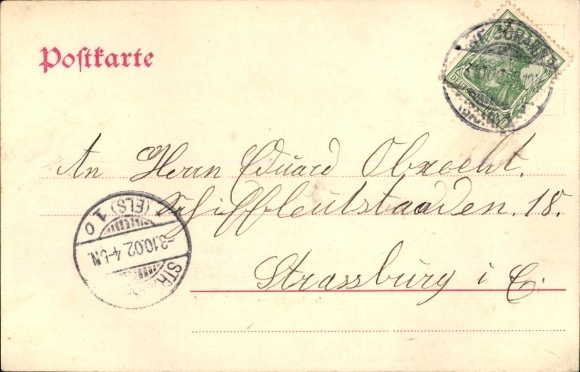 Postkarte
An Herrn Eduard Obrecht.
Schiffleutstaaden. 18.
Strassburg i E.
STR
(ELS) 1 o
3.10.02.4-5N.